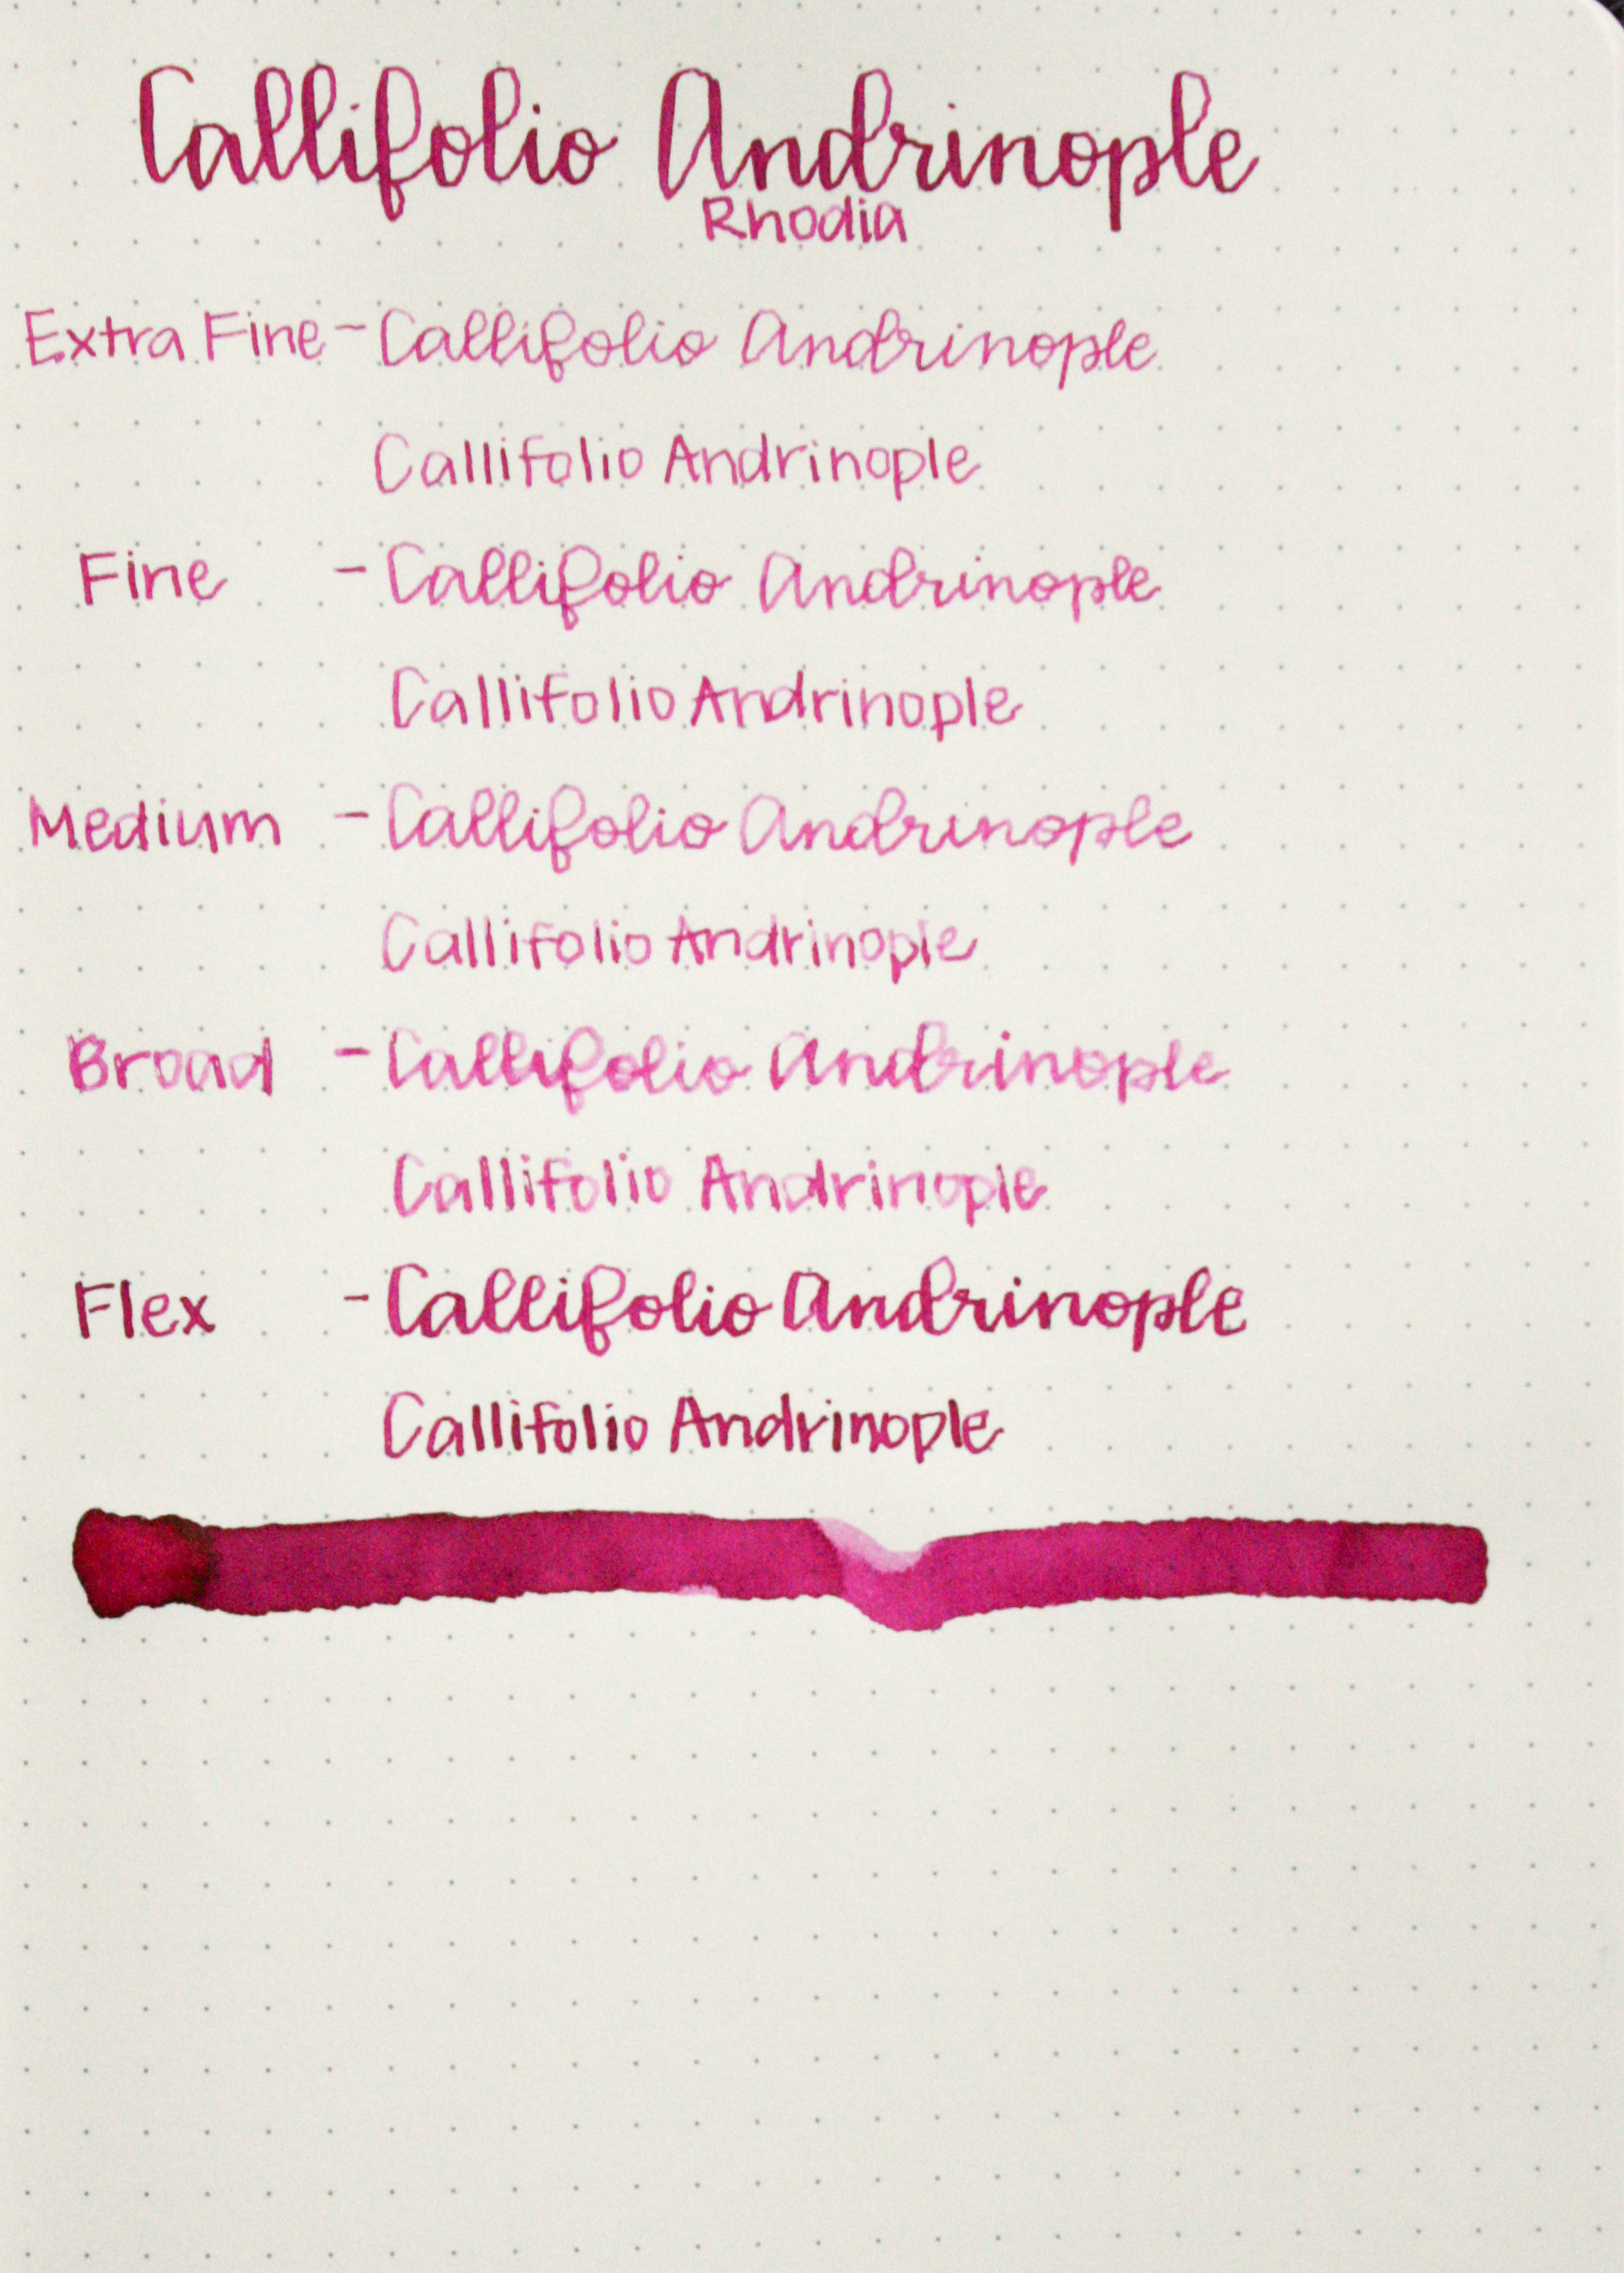 Callifolio Andrinople
Rhodia
Extra Fine - Callifolio Andrinople
Callifolio Andrinople
Fine - Callifolio Andrinople
Callifolio Andrinople
Medium - Callifolio Andrinople
Callifolio Andrinople
Broad - Callifolio Andrinople
Callifolio Andrinople
Flex - Callifolio Andrinople
Callifolio Andrinople